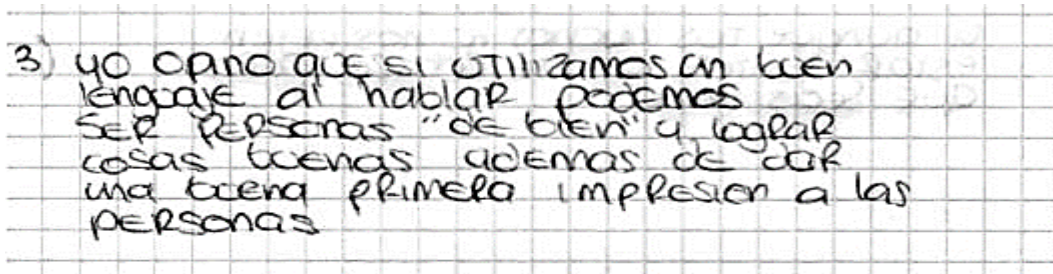 3) yo opino que si utilizamos un buen
lenguaje al hablar podemos
ser personas "de bien" y lograr
cosas buenas ademas de dar
una buena primera impresion a las
personas